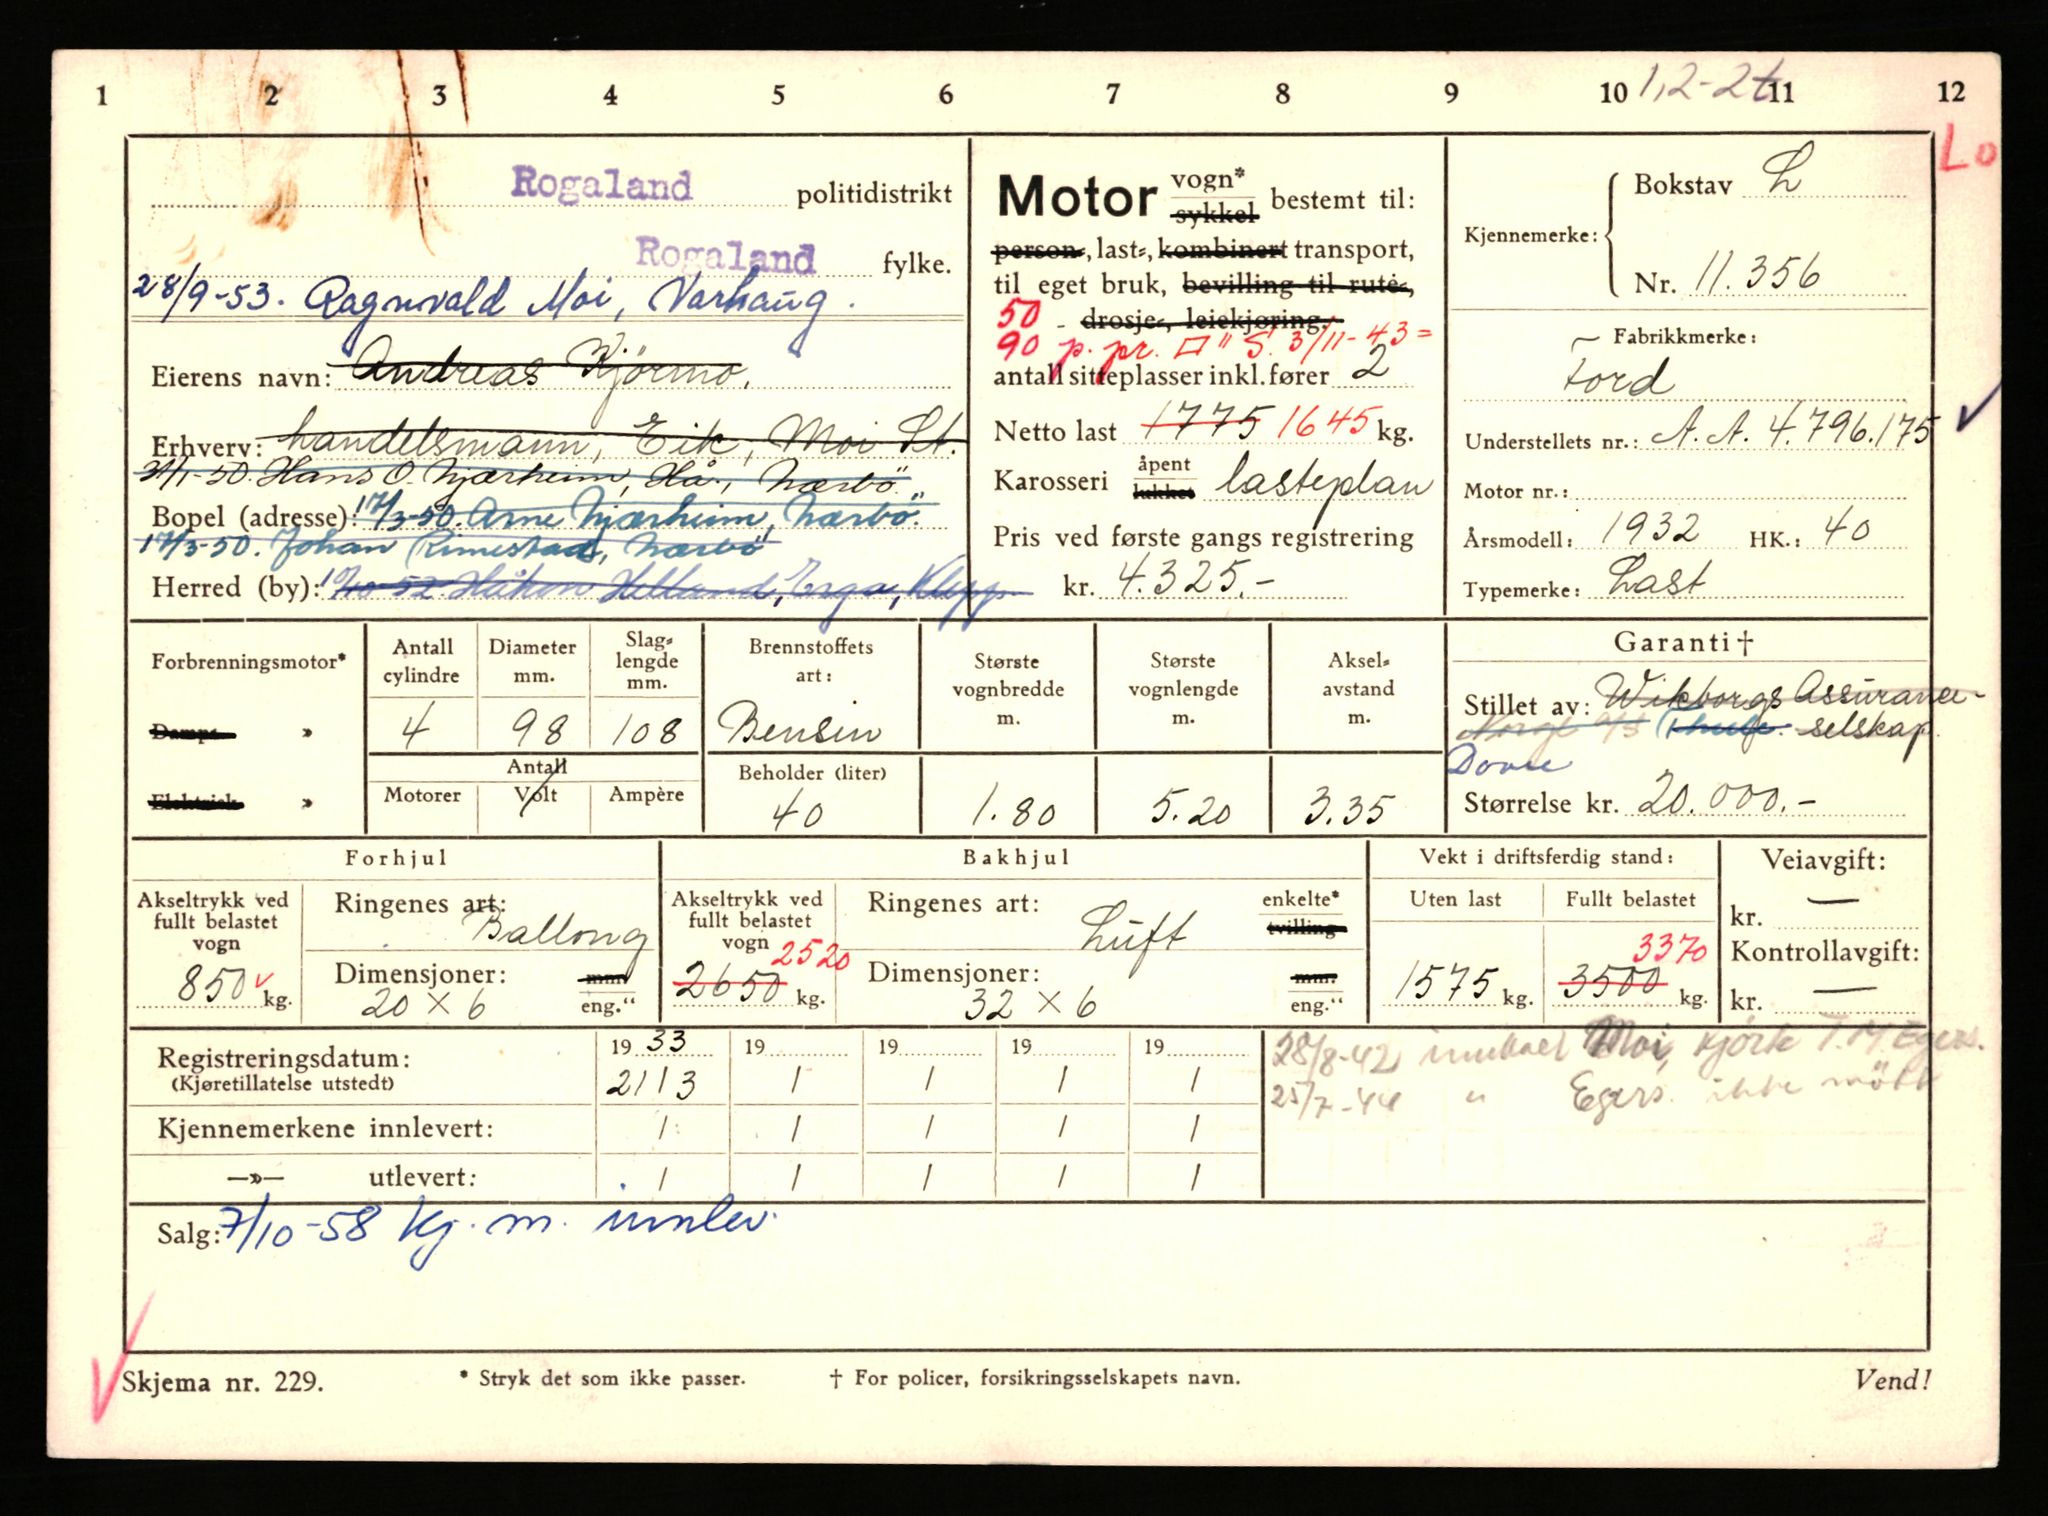 1 2 3 4 5 6 7 8 9 10 1,2-2t 11 12
Lo
Rogaland politidistrikt
Rogaland fylke.
28/9-53. Ragnvald Moi, Varhaug.
Eierens navn: Andreas Kjörmo.
Erhverv: handelsmann, Eik, Moi St.
31/1-50. Hans O. Njærheim, Hå, Nærbö.
Bopel (adresse): 17/3-50. Arne Njærheim, Nærbö.
17/3-50. Johan Rimestad, Nærbö
Herred (by): Håkon Helland, Erga, Klepp
Motor vogn* sykkel bestemt til:
person-, last-, kombinert transport,
til eget bruk, bevilling til rute-,
50 - drosje-, leiekjøring.
90 p. pr. □" S. 3/11-43 =
antall sitteplasser inkl. fører 2
Netto last 1775 1645 kg.
Karosseri åpent lukket lasteplan
Pris ved første gangs registrering
kr. 4.325.-
Kjennemerke: Bokstav L
Nr. 11.356
Fabrikkmerke:
Ford
Understellets nr.: A.A. 4.796.175
Motor nr.:
Årsmodell: 1932 HK.: 40
Typemerke: Last
Forbrenningsmotor*
Damps- »
Elektrisk »
Antall cylindre
4
Diameter mm.
98
Slag-
lengde
mm.
108
Antall
Motorer Volt Ampère
Brennstoffets
art:
Bensin
Beholder (liter)
40
Største
vognbredde
m.
1.80
Største
vognlengde
m.
5.20
Aksel-
avstand
m.
3.35
Garanti †
Stillet av: Wikborgs Assurance-
Norge A/S Thule. selskap.
Dovre
Størrelse kr. 20.000.-
Forhjul
Akseltrykk ved
fullt belastet
vogn
850 kg.
Ringenes art:
Ballong
Dimensjoner: mm
20 × 6 eng."
Bakhjul
Akseltrykk ved
fullt belastet
vogn 2520
2650 kg.
Ringenes art: enkelte*
Luft tvilling-
Dimensjoner: mm.
32 × 6 eng."
Vekt i driftsferdig stand:
Uten last
1575 kg.
Fullt belastet
3370
3500 kg.
Veiavgift:
kr. —
Kontrollavgift:
kr. —
Registreringsdatum: 19 33 19 19 19 19
(Kjøretillatelse utstedt) 21/3 / / / /
Kjennemerkene innlevert: / / / / /
—»— utlevert: / / / / /
28/8-42 innkalt Moi, kjörte T.M. Egers.
25/7-44 " Egers. ikke mött
Salg: 7/10-58 kj. m. innlev.
Skjema nr. 229.
* Stryk det som ikke passer.
† For policer, forsikringsselskapets navn.
Vend!